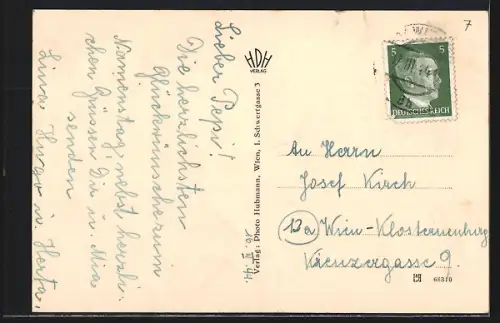 7
Lieber Pepi!
Die herzlichsten
Glückwünsche zum
Namenstag, nebst herzli-
chen Grüssen Dir u. Mina
senden
Lina Hugo u. Herta.
19. III. 44.
HDH
VERLAG
Verlag: Photo Hubmann, Wien, I. Schwertgasse 3
5 5
DEUTSCHES REICH
An Herrn
Josef Kirch
12a Wien-Klosterneuburg
Kreuzergasse 9.
66310